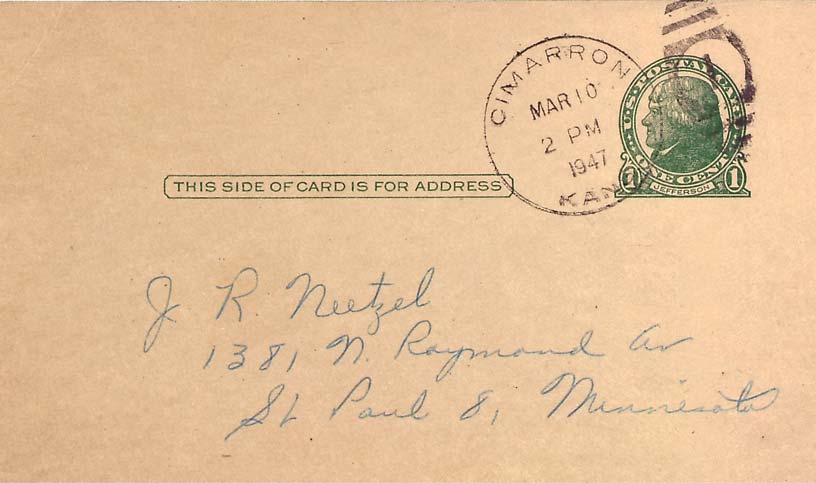 CIMARRON
MAR 10
2 PM
1947
KAN
U.S. POSTAL CARD
ONE CENT
1 JEFFERSON 1
THIS SIDE OF CARD IS FOR ADDRESS
J R. Neetzel
1381 N. Raymond Av
St Paul 8, Minnesota